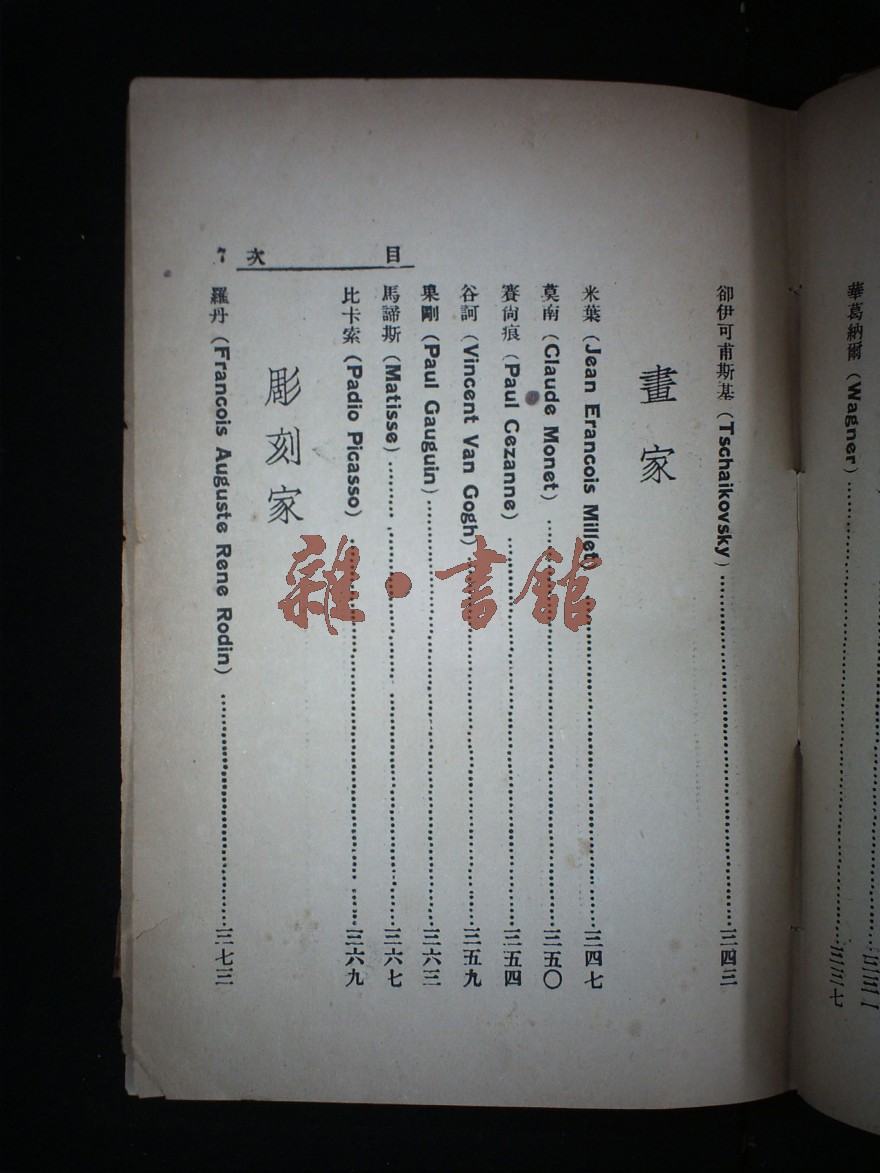 華葛納爾 (Wagner)……三三七
目次 7
卻伊可甫斯基 (Tschaikovsky)……三四三
畫家
米葉 (Jean Erancois Millet)……三四七
莫南 (Claude Monet)……三五〇
賽尙痕 (Paul Cezanne)……三五四
谷訶 (Vincent Van Gogh)……三五九
果剛 (Paul Gauguin)……三六三
馬諦斯 (Matisse)……三六七
比卡索 (Padio Picasso)……三六九
彫刻家
羅丹 (Francois Auguste Rene Rodin)……三七三
雜·書館